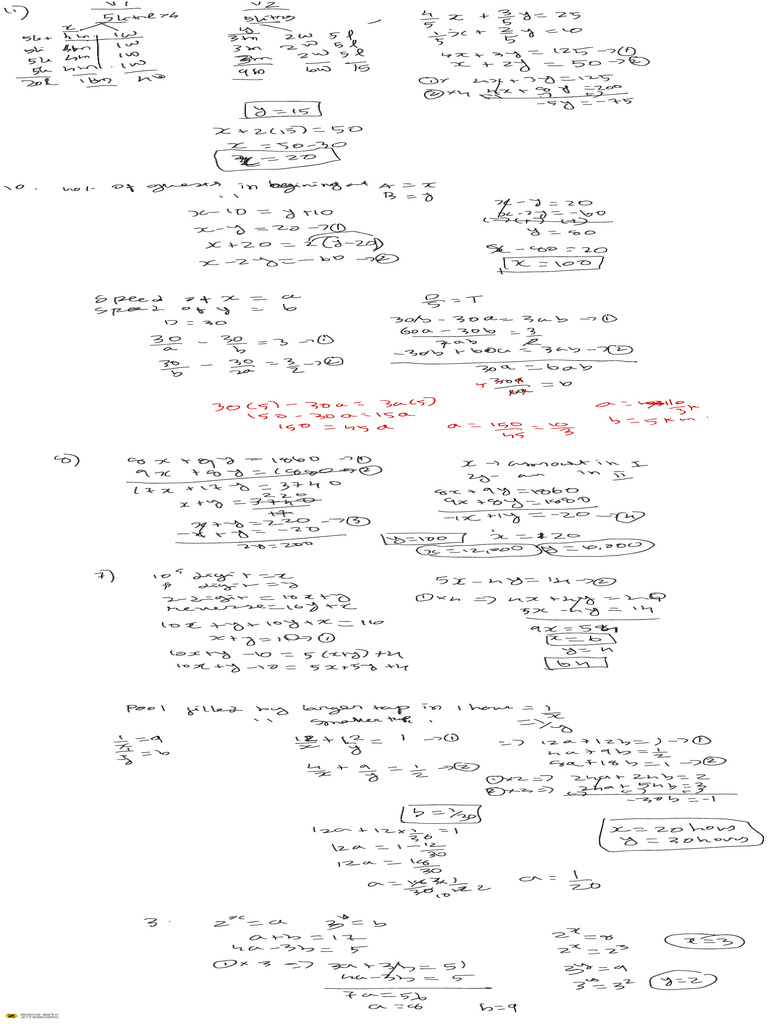 11) V1 V2
5L
5L 4m 1w
5L 4m 1w
5L 4m 1w
5L 4m 1w
20L 4w
3m 2w 5l
3m 2w 5l
3m 2w 5l
9m 6w 15
4/5 x + 3/5 y = 25
1/5 x + 2/5 y = 10
4x + 3y = 125 → ①
x + 2y = 50 → ②
① x 4x + 3y = 125
② x 4 4x + 8y = 200
-5y = -75
y = 15
x + 2(15) = 50
x = 50 - 30
x = 20
10. no. of guests in begining at A = x
'' B = y
x - 10 = y + 10
x - y = 20 → ①
x + 20 = 2(y - 20)
x - 2y = -60 → ②
x - y = 20
x - 2y = -60
y = 80
x - 80 = 20
x = 100
Speed of x = a
Speed of y = b
D = 30
30/a - 30/b = 3 → ①
30/b - 30/2a = 3/2 → ②
D/S = T
30b - 30a = 3ab → ①
60a - 30b / 2ab = 3/2
-30b + 60a = 3ab → ②
30a = 6ab
= b
30(5) - 30a = 3a(5)
150 - 30a = 15a
150 = 45a
a = 150/45 = 10/3
b = 5 km
8) 8x + 9y = 1860 → ①
9x + 8y = 1880 → ②
17x + 17y = 3740
x + y = 220
x + y = 220 → ③
-x + y = -20
2y = 200
x → amount in I
y in II
8x + 9y = 1860
9x + 8y = 1880
-1x + 1y = -20 → ④
y = 100 x = 120
x = 12,000 y = 10,000
7) 10's digit = x
digit = y
2 digit = 10x + y
reverse = 10y + x
x + y = 10 → ①
10x + y - 10 = 5(x + y) + 4
10x + y - 10 = 5x + 5y + 4
5x - 4y = 14 → ②
① x 4 ⇒ 4x + 4y = 40
5x - 4y = 14
9x = 54
x = 6
y = 4
64
Pool filled by larger tap in 1 hour = 1/x
'' smaller tap '' = 1/y
1/x = a
1/y = b
12/x + 12/y = 1 → ①
4/x + 9/y = 1/2 → ②
⇒ 12a + 12b = 1 → ①
4a + 9b = 1/2
8a + 18b = 1 → ②
① x 2 ⇒ 24a + 24b = 2
② x 3 ⇒ 24a + 54b = 3
-30b = -1
b = 1/30
12a + 12 x 1/30 = 1
12a = 1 - 12/30
12a = 18/30
a = 1/20
x = 20 hours
y = 30 hours
3. 2^x = a 3^y = b
a + b = 17
4a - 3b = 5
① x 3 ⇒ 3a + 3b = 51
4a - 3b = 5
7a = 56
a = 8 b = 9
2^x = 8
2^x = 2^3
x = 3
3^y = 9
3^y = 3^2
y = 2